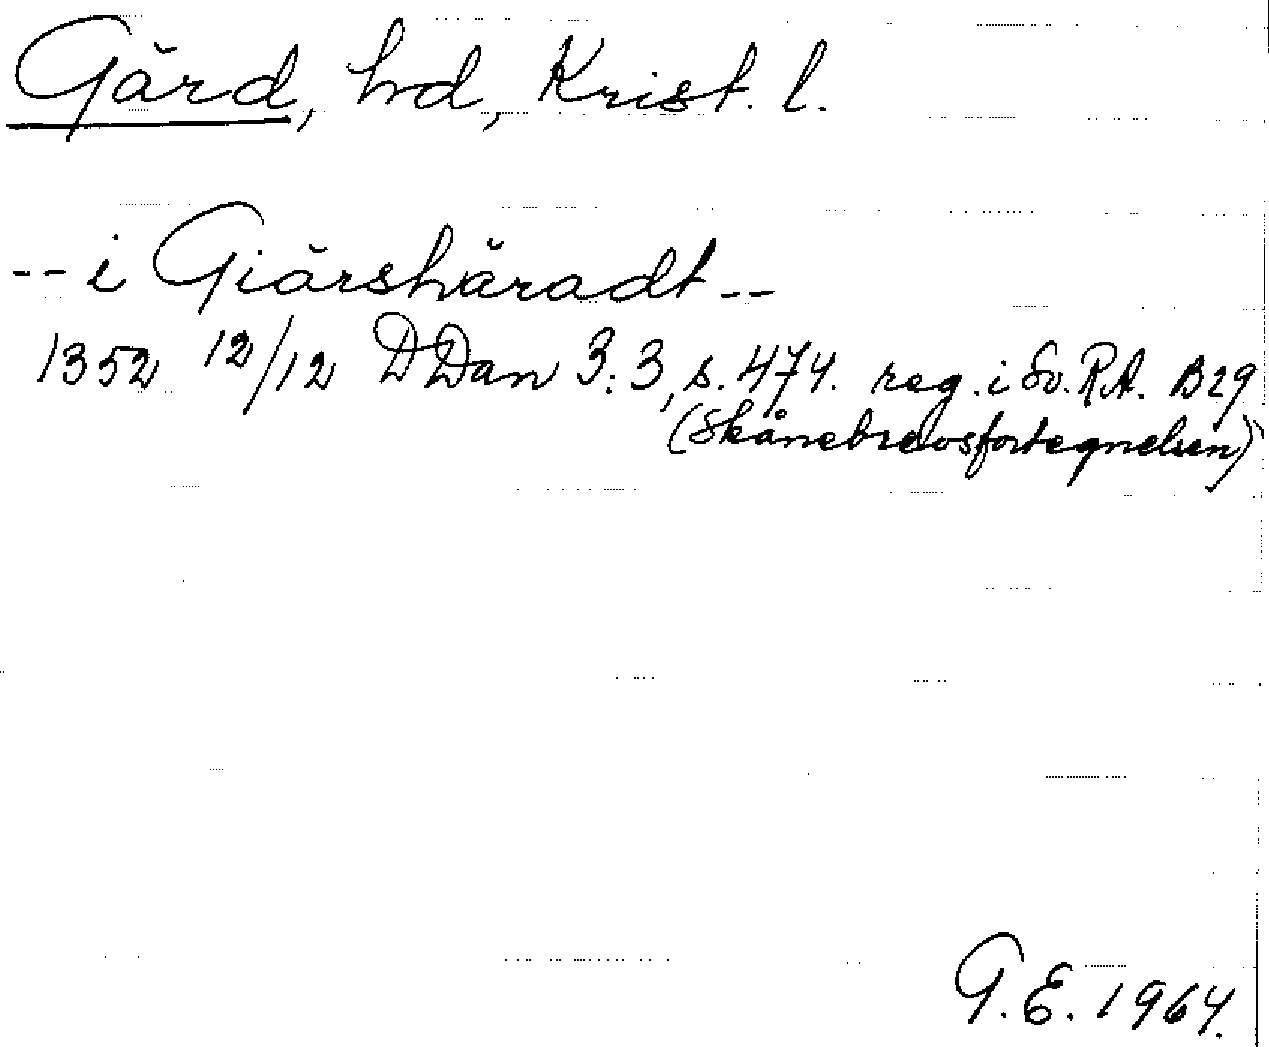 Gärd, hd, Krist. l.
-- i Giärshäradt --
1352 12/12 DDan 3:3, s. 474. reg. i Sv. R.A. B29
(Skånebrevsfortegnelsen)
G.E. 1964.